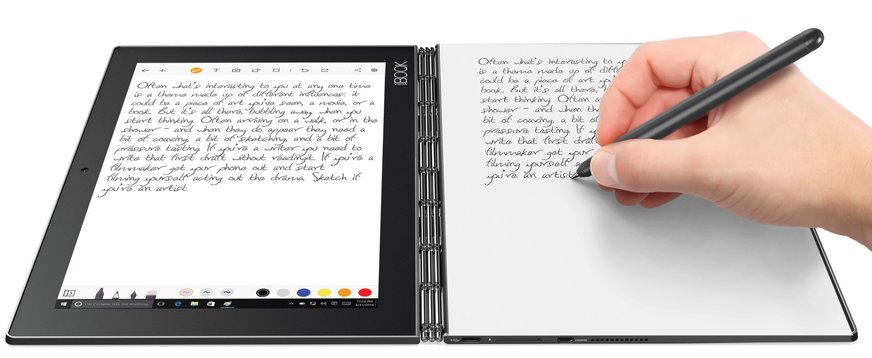 Often what's interesting to you at any one time
is a theme made up of different influences; it
could be a piece of art you've seen, a movie, or a
book. But it's all there, bubbling away when you
start thinking. Often arriving on a walk, or in the
shower - and when they do appear they need a
bit of coaxing, a bit of sketching, and a bit of
pressure tasting. If you're a writer you need to
write that first draft without readingit. If you're a
filmmaker get your phone out and start
filming yourself acting out the drama. Sketch if
you're an artist
I'm Cortana. Ask me anything.
BOOK
Often what's interesting to
is a theme made up of
could be a piece of
book. But it's all there,
start thinking. Often
shower - and when
bit of coaxing, a b
pressure tasting. If y
write that first dra
filmmaker get your
filming yourself a
you're an artist
HDMI